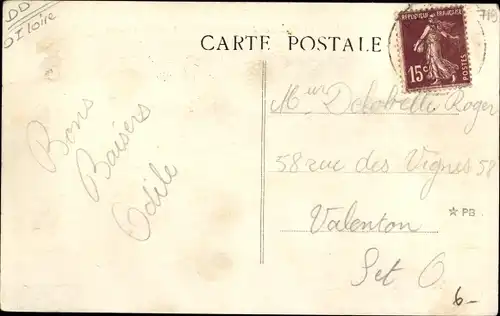 DD
D I loire
713
CARTE POSTALE
REPUBLIQUE FRANÇAISE
15c
POSTES
Bons
Baisers
Odile
Meur Delabelle Roger
58 rue des Vignes 58
Valenton
★ PB
Set O
6-